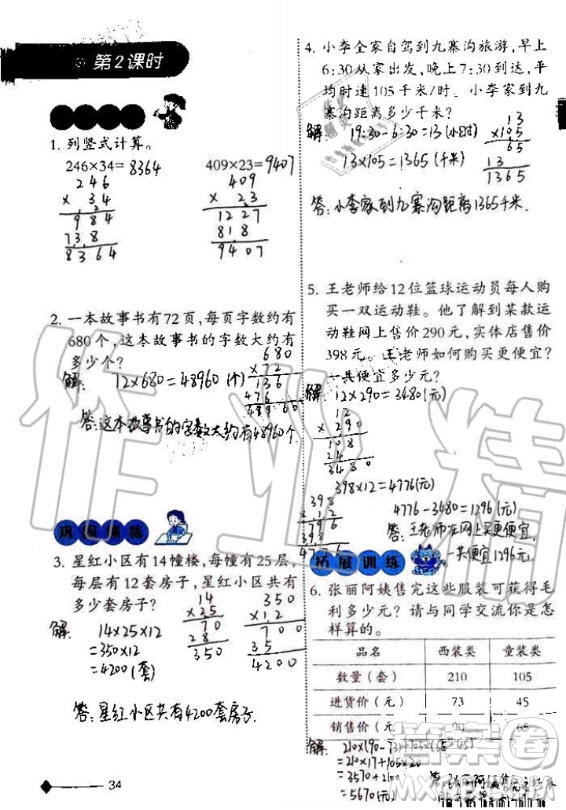 第2课时
1. 列竖式计算。
246×34=8364
246
× 34
984
738
8364
409×23=9407
409
× 23
1227
818
9407
2. 一本故事书有72页，每页字数约有
680个，这本故事书的字数大约有
多少个？
解:
72×680=48960(个)
680
×72
136
476
48960
答:这本故事书的字数大约有48960个.
巩固训练
3. 星红小区有14幢楼，每幢有25层，
每层有12套房子？星红小区共有
多少套房子？
解:
14×25×12
=350×12
=4200(套)
14
×25
70
28
350
350
×12
700
35
4200
答:星红小区共有4200套房子.
34
4. 小李全家自驾到九寨沟旅游，早上
6:30从家出发，晚上7:30到达，平
均时速105千米/时。小李家到九
寨沟距离多少千米？
解:
19:30-6:30=13(小时)
13×105=1365(千米)
13
×105
65
13
1365
答:小李家到九寨沟距离1365千米.
5. 王老师给12位篮球运动员每人购
买一双运动鞋。他了解到某款运
动鞋网上售价290元，实体店售价
398元。王老师如何购买更便宜？
一共便宜多少元？
解:
12×290=3480(元)
12
×290
108
24
3480
398×12=4776(元)
398
4776-3480=1296(元)
答:王老师在网上买更便宜,
一共便宜1296元.
拓展训练
6. 张丽阿姨售完这些服装可获得毛
利多少元？请与同学交流你是怎
样算的。
品名 西装类 童装类
数量（套） 210 105
进货价（元） 73 45
销售价（元） 90 65
解:
=210×17+105×20
=3570+2100
=5670(元)
作业精
答案